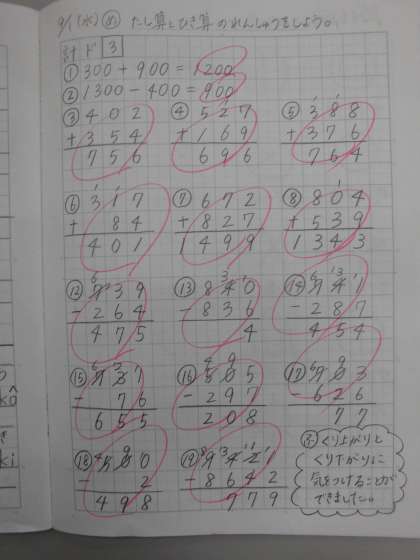 9/1(水) め たし算とひき算のれんしゅうをしよう。
計ド 3
① 300+900=1200
② 1300-400=900
③ 402 ④ 527 ⑤ 388
+354 +169 +376
756 696 764
⑥ 317 ⑦ 672 ⑧ 804
+ 84 +827 +539
401 1499 1343
⑫ 739 ⑬ 840 ⑭ 741
-264 -836 -287
475 4 454
⑮ 731 ⑯ 505 ⑰ 703
- 76 -297 -626
655 208 77
⑱ 500 ⑲ 9421
- 2 -8642
498 779
くり上がりと
くり下がりに
気をつけることが
できました。
kô
ki